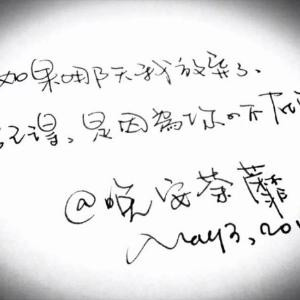 如果哪天我放弃了、
记得，是因為你的不
@晚安荼蘼
May3,201